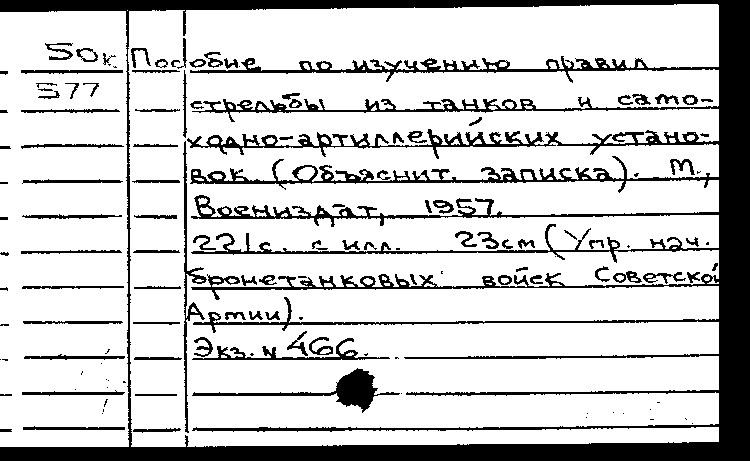 50к Пособие по изучению правил
577 стрельбы из танков и само-
ходно-артиллерийских устано-
вок (Объяснит. записка). М.,
Воениздат, 1957.
221с. с илл. 23см (Упр. нач.
бронетанковых войск Советской
Армии).
Экз. N 466.